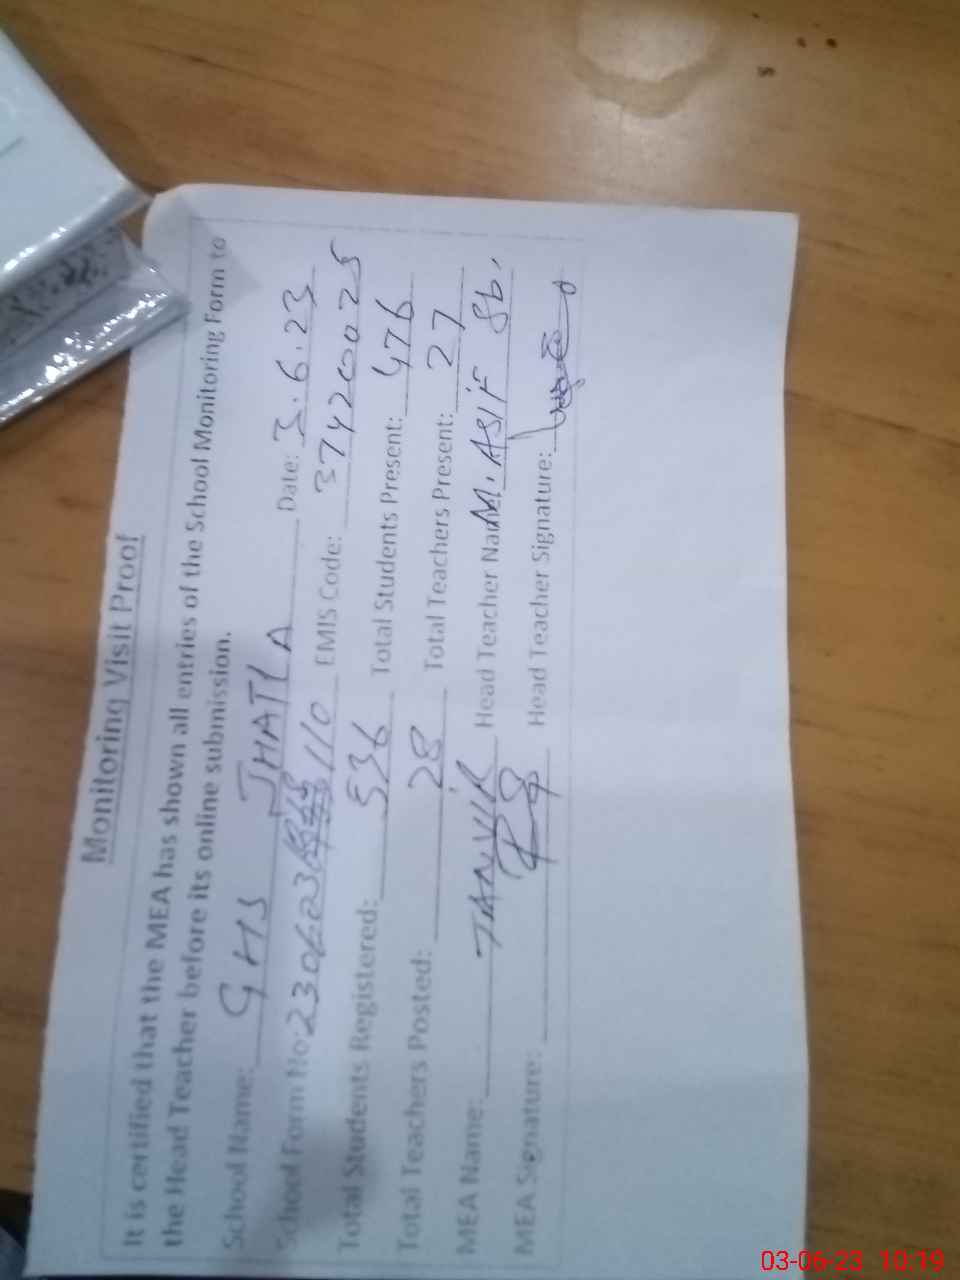 Monitoring Visit Proof
It is certified that the MEA has shown all entries of the School Monitoring Form to
the Head Teacher before its online submission.
School Name: GHS JHATLA Date: 3.6.23
School Form No: EMIS Code: 37420025
Total Students Registered: 536 Total Students Present: 476
Total Teachers Posted: 28 Total Teachers Present: 27
MEA Name: TANVIR Head Teacher Name: M. ASIF Sb.
MEA Signature: Head Teacher Signature:
03-06-23 10:19